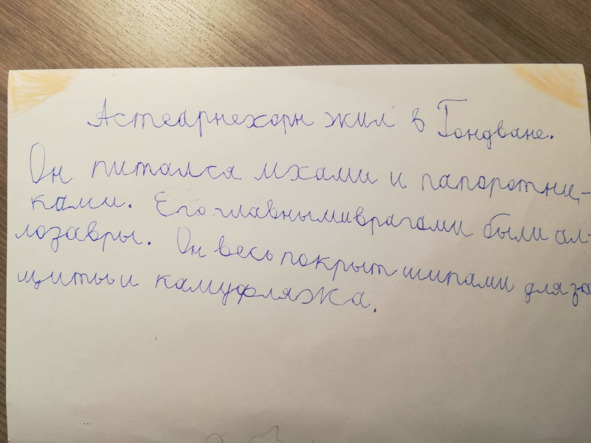 Астеарнехорн жил в Гондване.
Он питался мхами и папоротни-
ками. Его главными врагами были ал-
лозавры. Он весь покрыт шипами для за
щиты и камуфляжа.